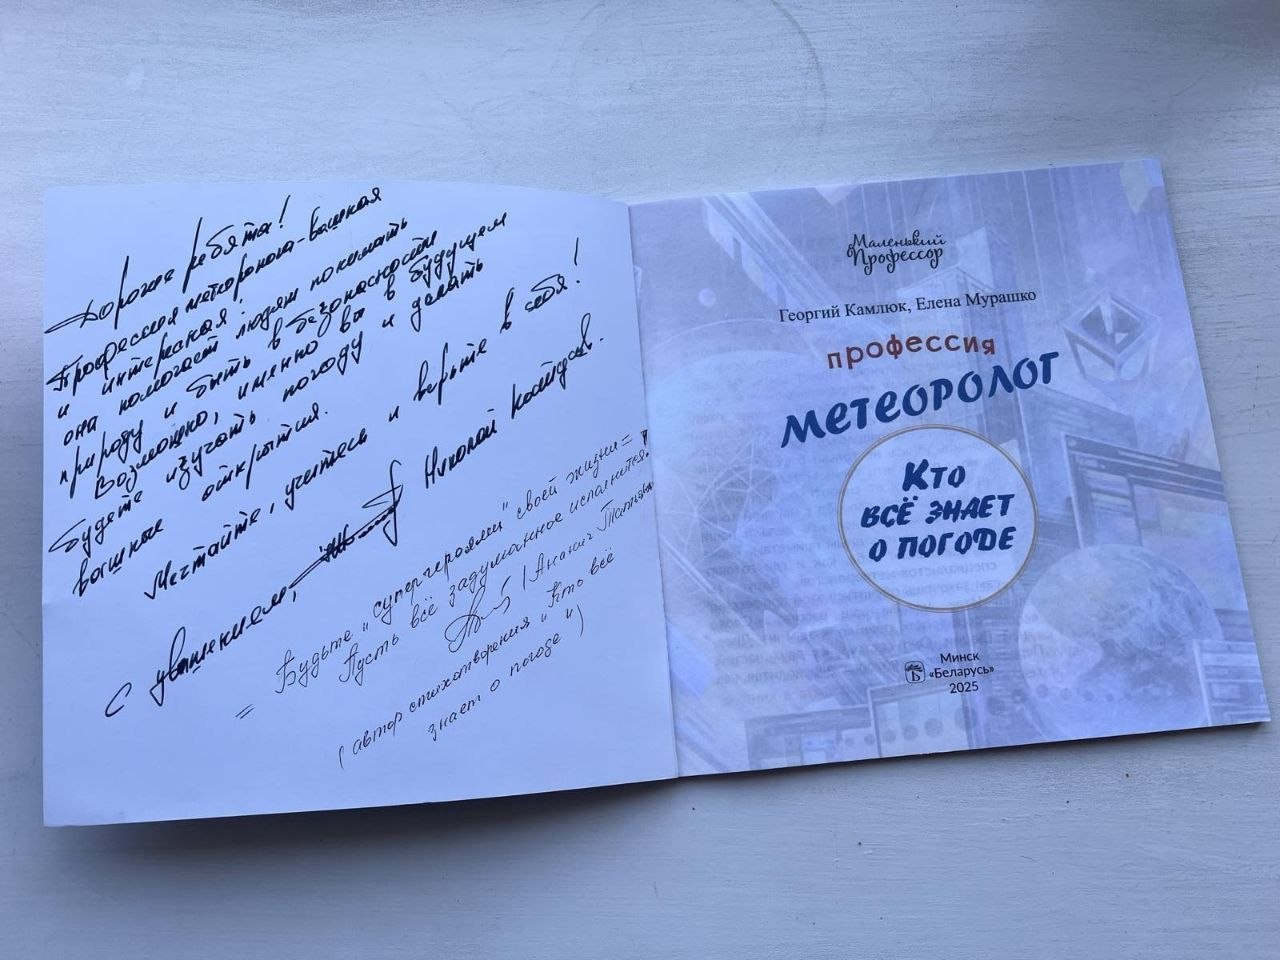 Дорогие ребята!
Профессия метеоролога - важная
и интересная:
она помогает людям понимать
природу и быть в безопасности
Возможно, именно вы в будущем
будете изучать погоду и делать
важные открытия.
Мечтайте, учитесь и верьте в себя!
С уважением, Николай
Будьте "супергероями" своей жизни =
= Пусть всё задуманное исполнится.
(Ананич Татьяна
(автор стихотворения "Кто всё
знает о погоде")
Маленький
Профессор
Георгий Камлюк, Елена Мурашко
профессия
МЕТЕОРОЛОГ
Кто
всё знает
о погоде
Минск
«Беларусь»
2025